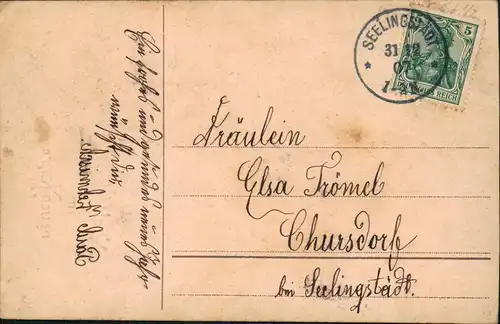 SEELINGSTADT
31 12
07
5
DEUTSCHES REICH
Fräulein
Elsa Trömel
Chursdorf
bei Seelingstädt.
Ein frohes und gesundes neues Jahr
wünscht Dir
Paul